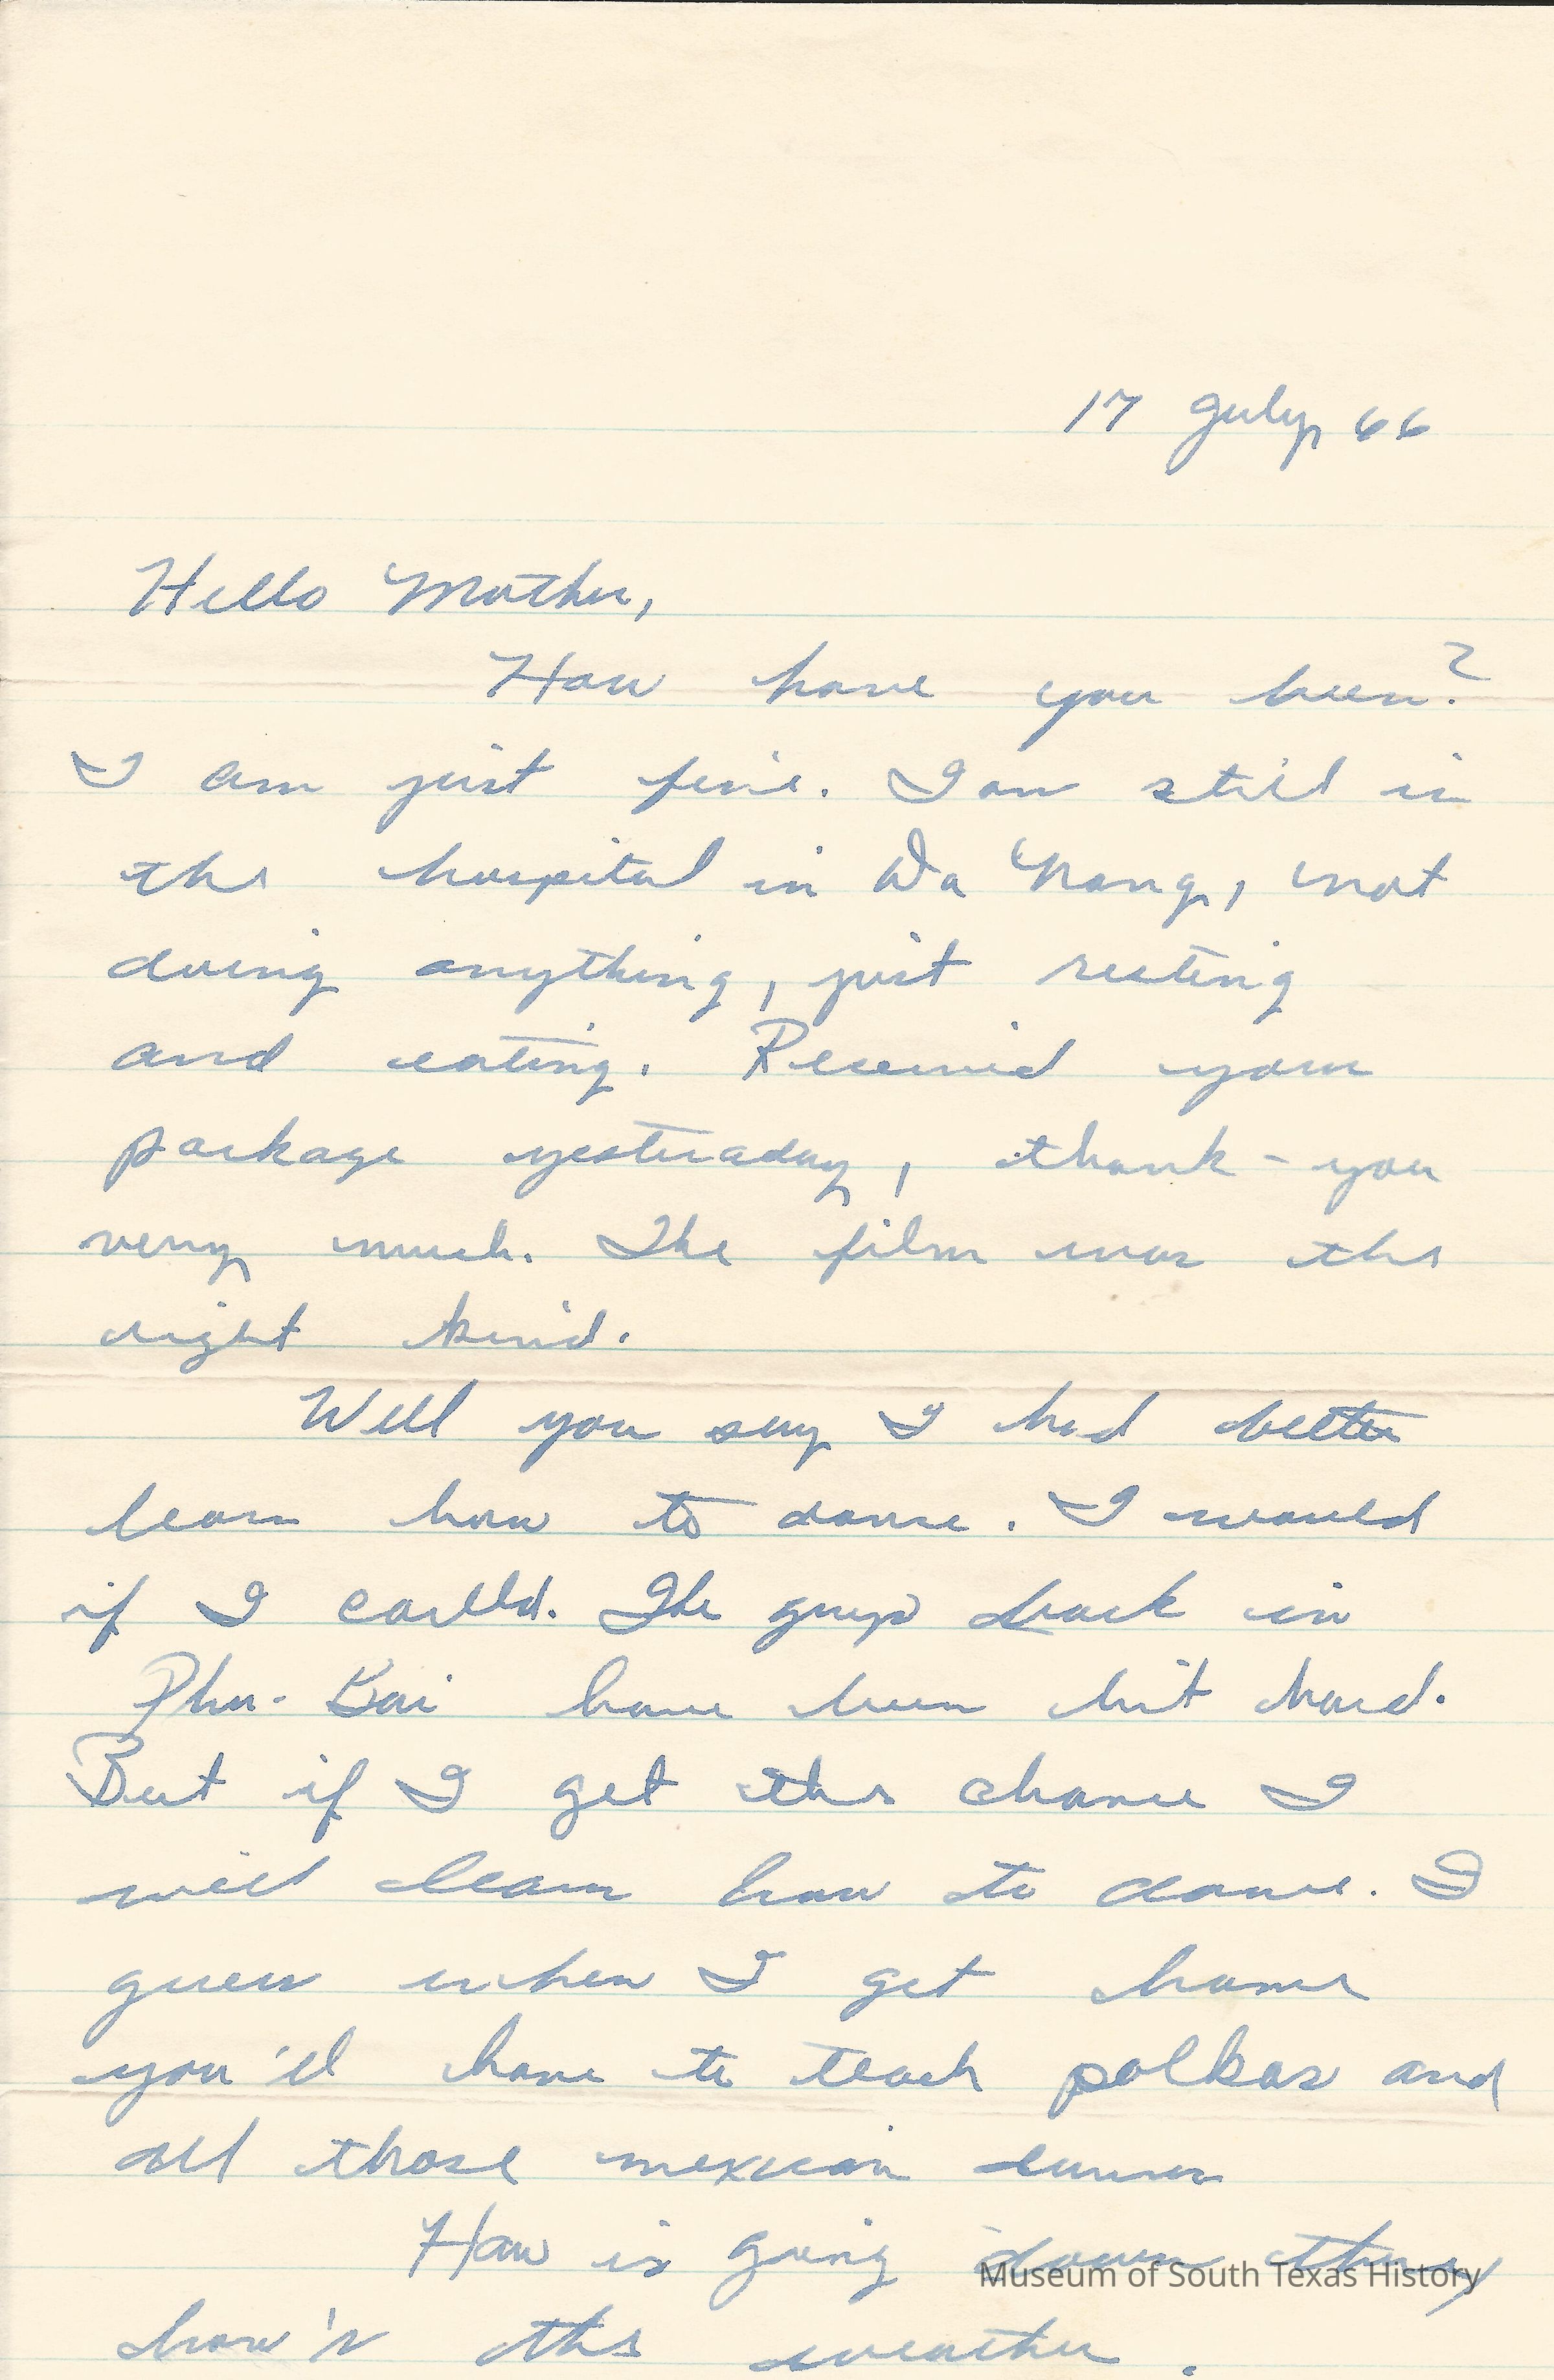 17 July, 66
Hello Mother,
How have you been?
I am just fine. I am still in
the hospital in Da Nang, not
doing anything, just resting
and eating. Received your
package yesteraday, thank-you
very much. The film was the
right kind.
Well you say I had better
learn how to dance. I would
if I could. The guys back in
Phu-Bai have been hit hard.
But if I get the chance I
will learn how to dance. I
guess when I get home
you'll have to teach polkas and
all those mexican
How is going down there,
how's the weather.
Museum of South Texas History